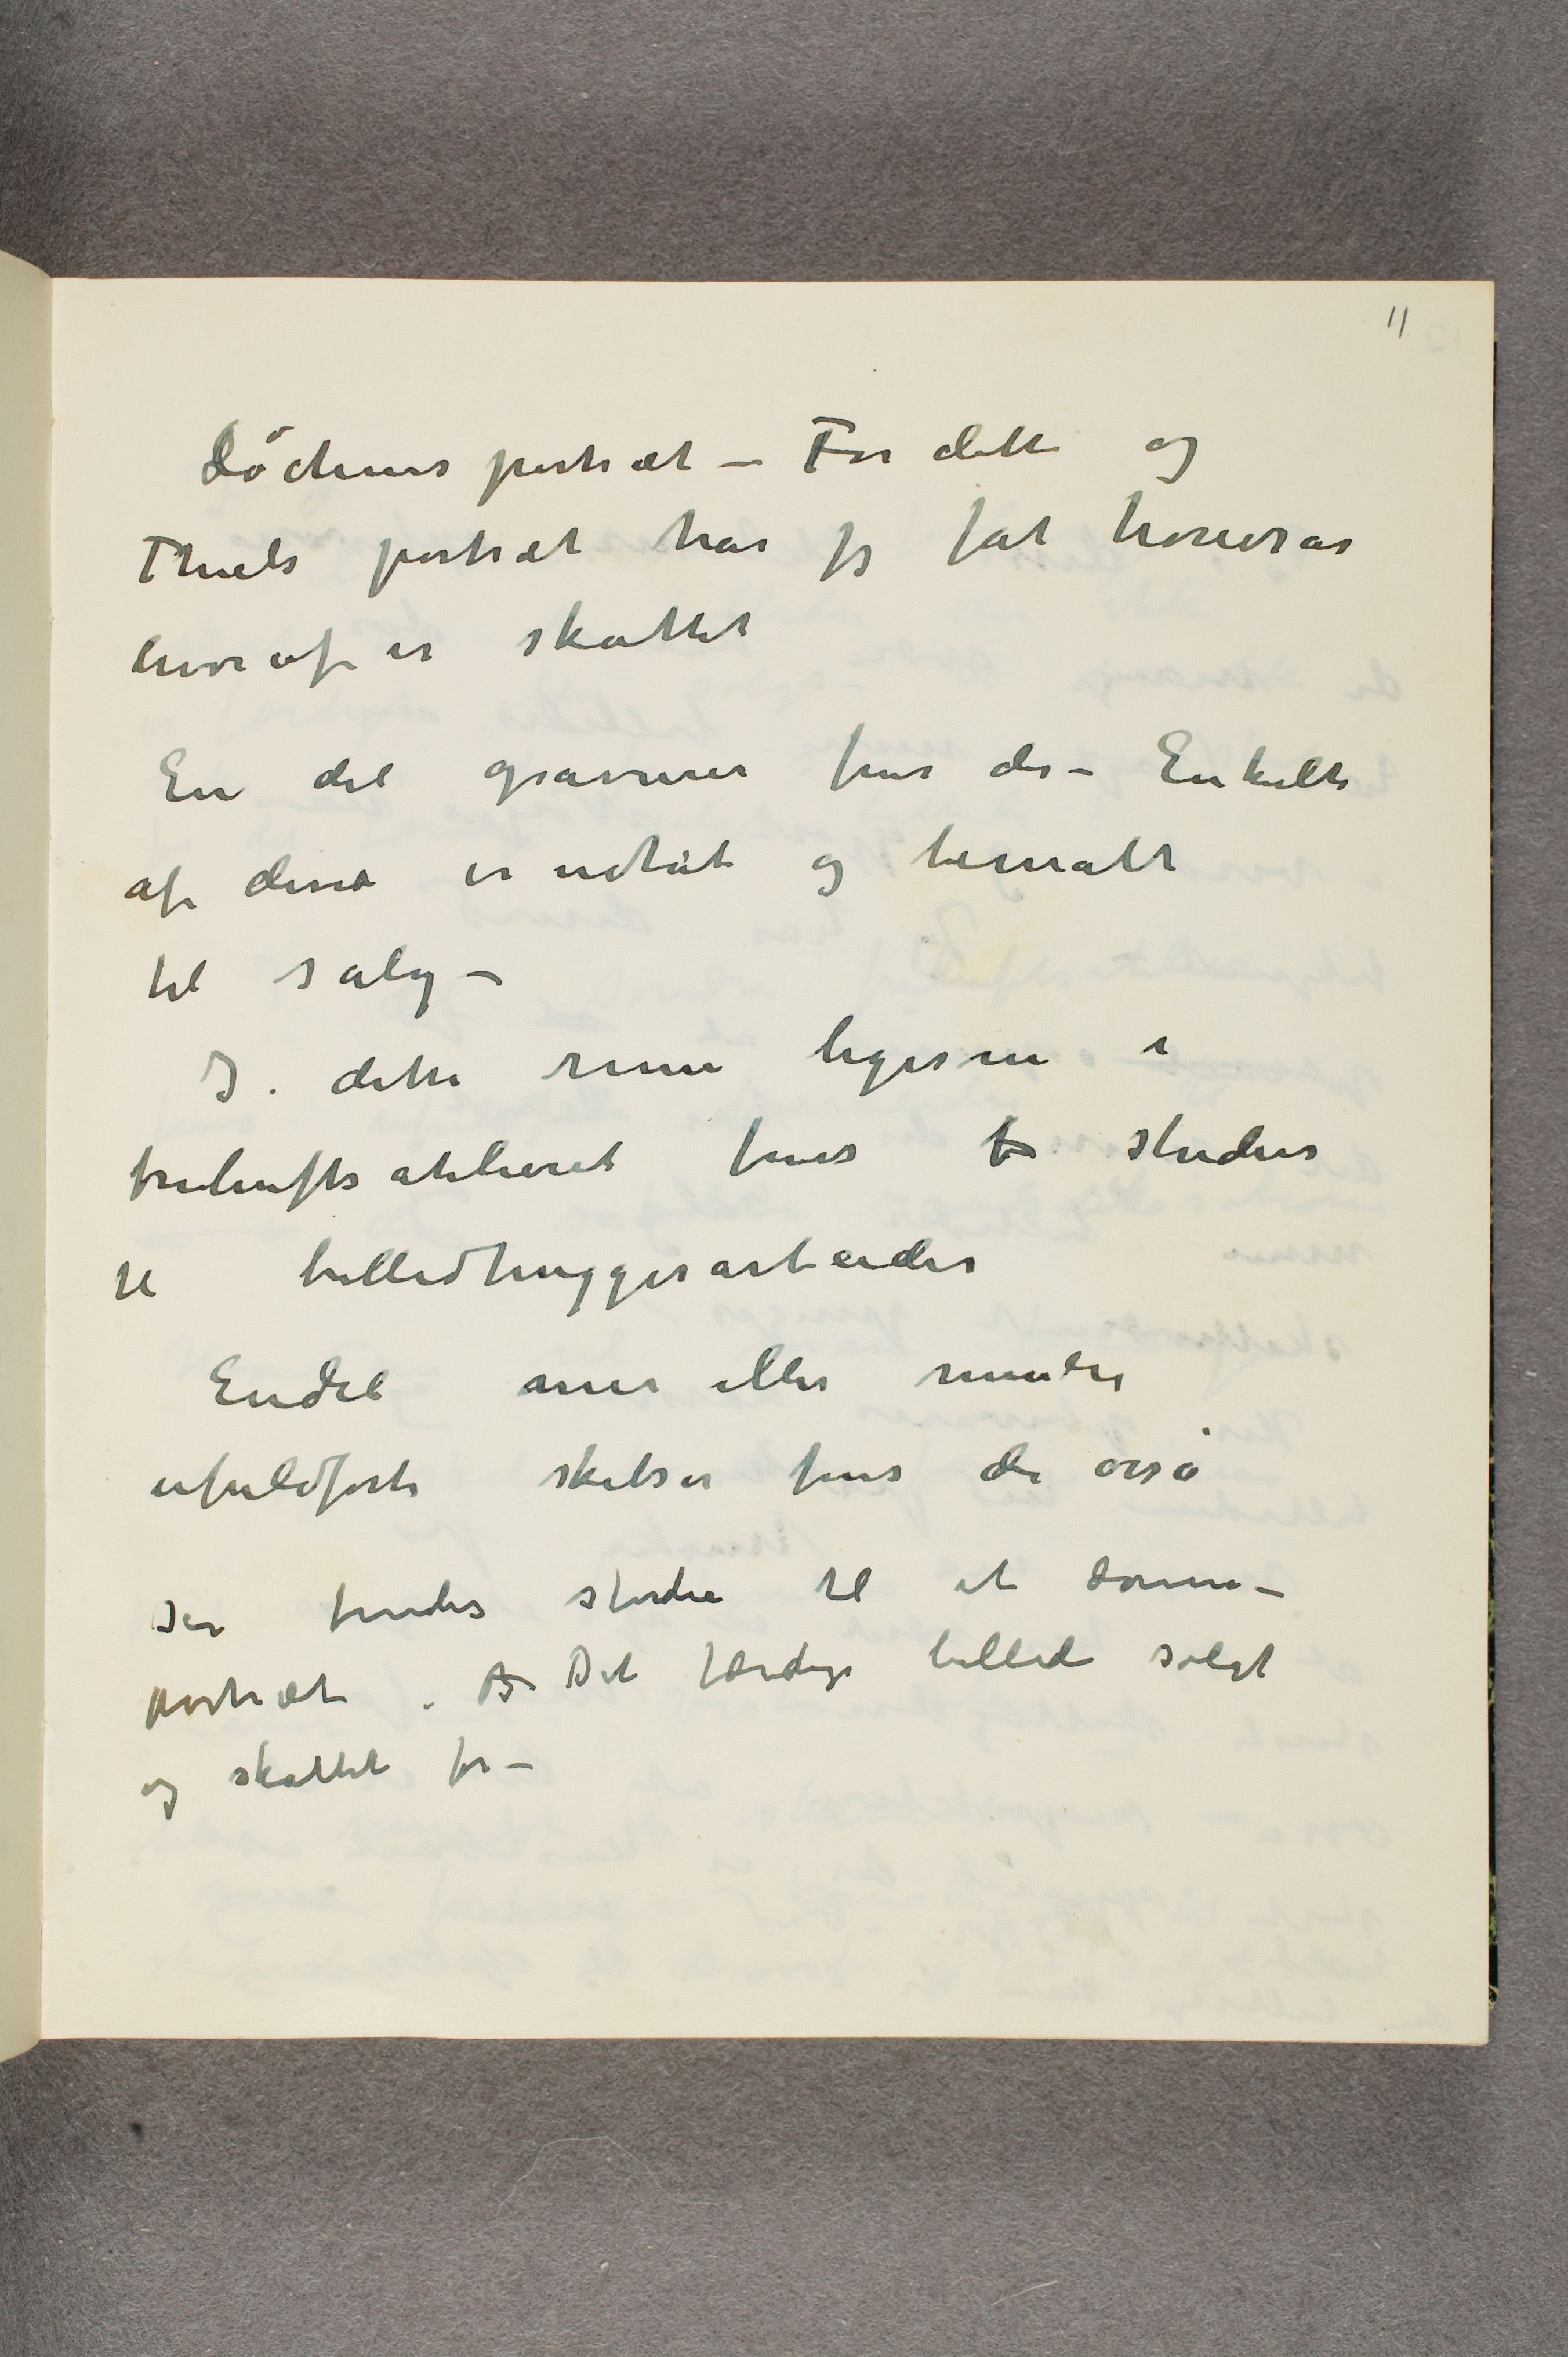 11
Lödchens portræt – For dette og
Thiels portræt har jeg fåt honorar
hvoraf er skattet
En del gravurer fins der – Enkelte
af disse er udtåt og bemalt
til salg –
I. dette rum ligesom i
friluftsatelieret fins studier
til billedhuggerarbeider
Endel mer eller mindre
ufuldførte skitser fins der også
Der findes studie til et dame–
portræt. Det færdige billede solgt
og skattet for –